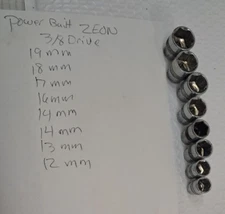 Power Built ZEON
3/8 Drive
19mm
18 mm
17 mm
16mm
14 mm
14 mm
13 mm
12 mm